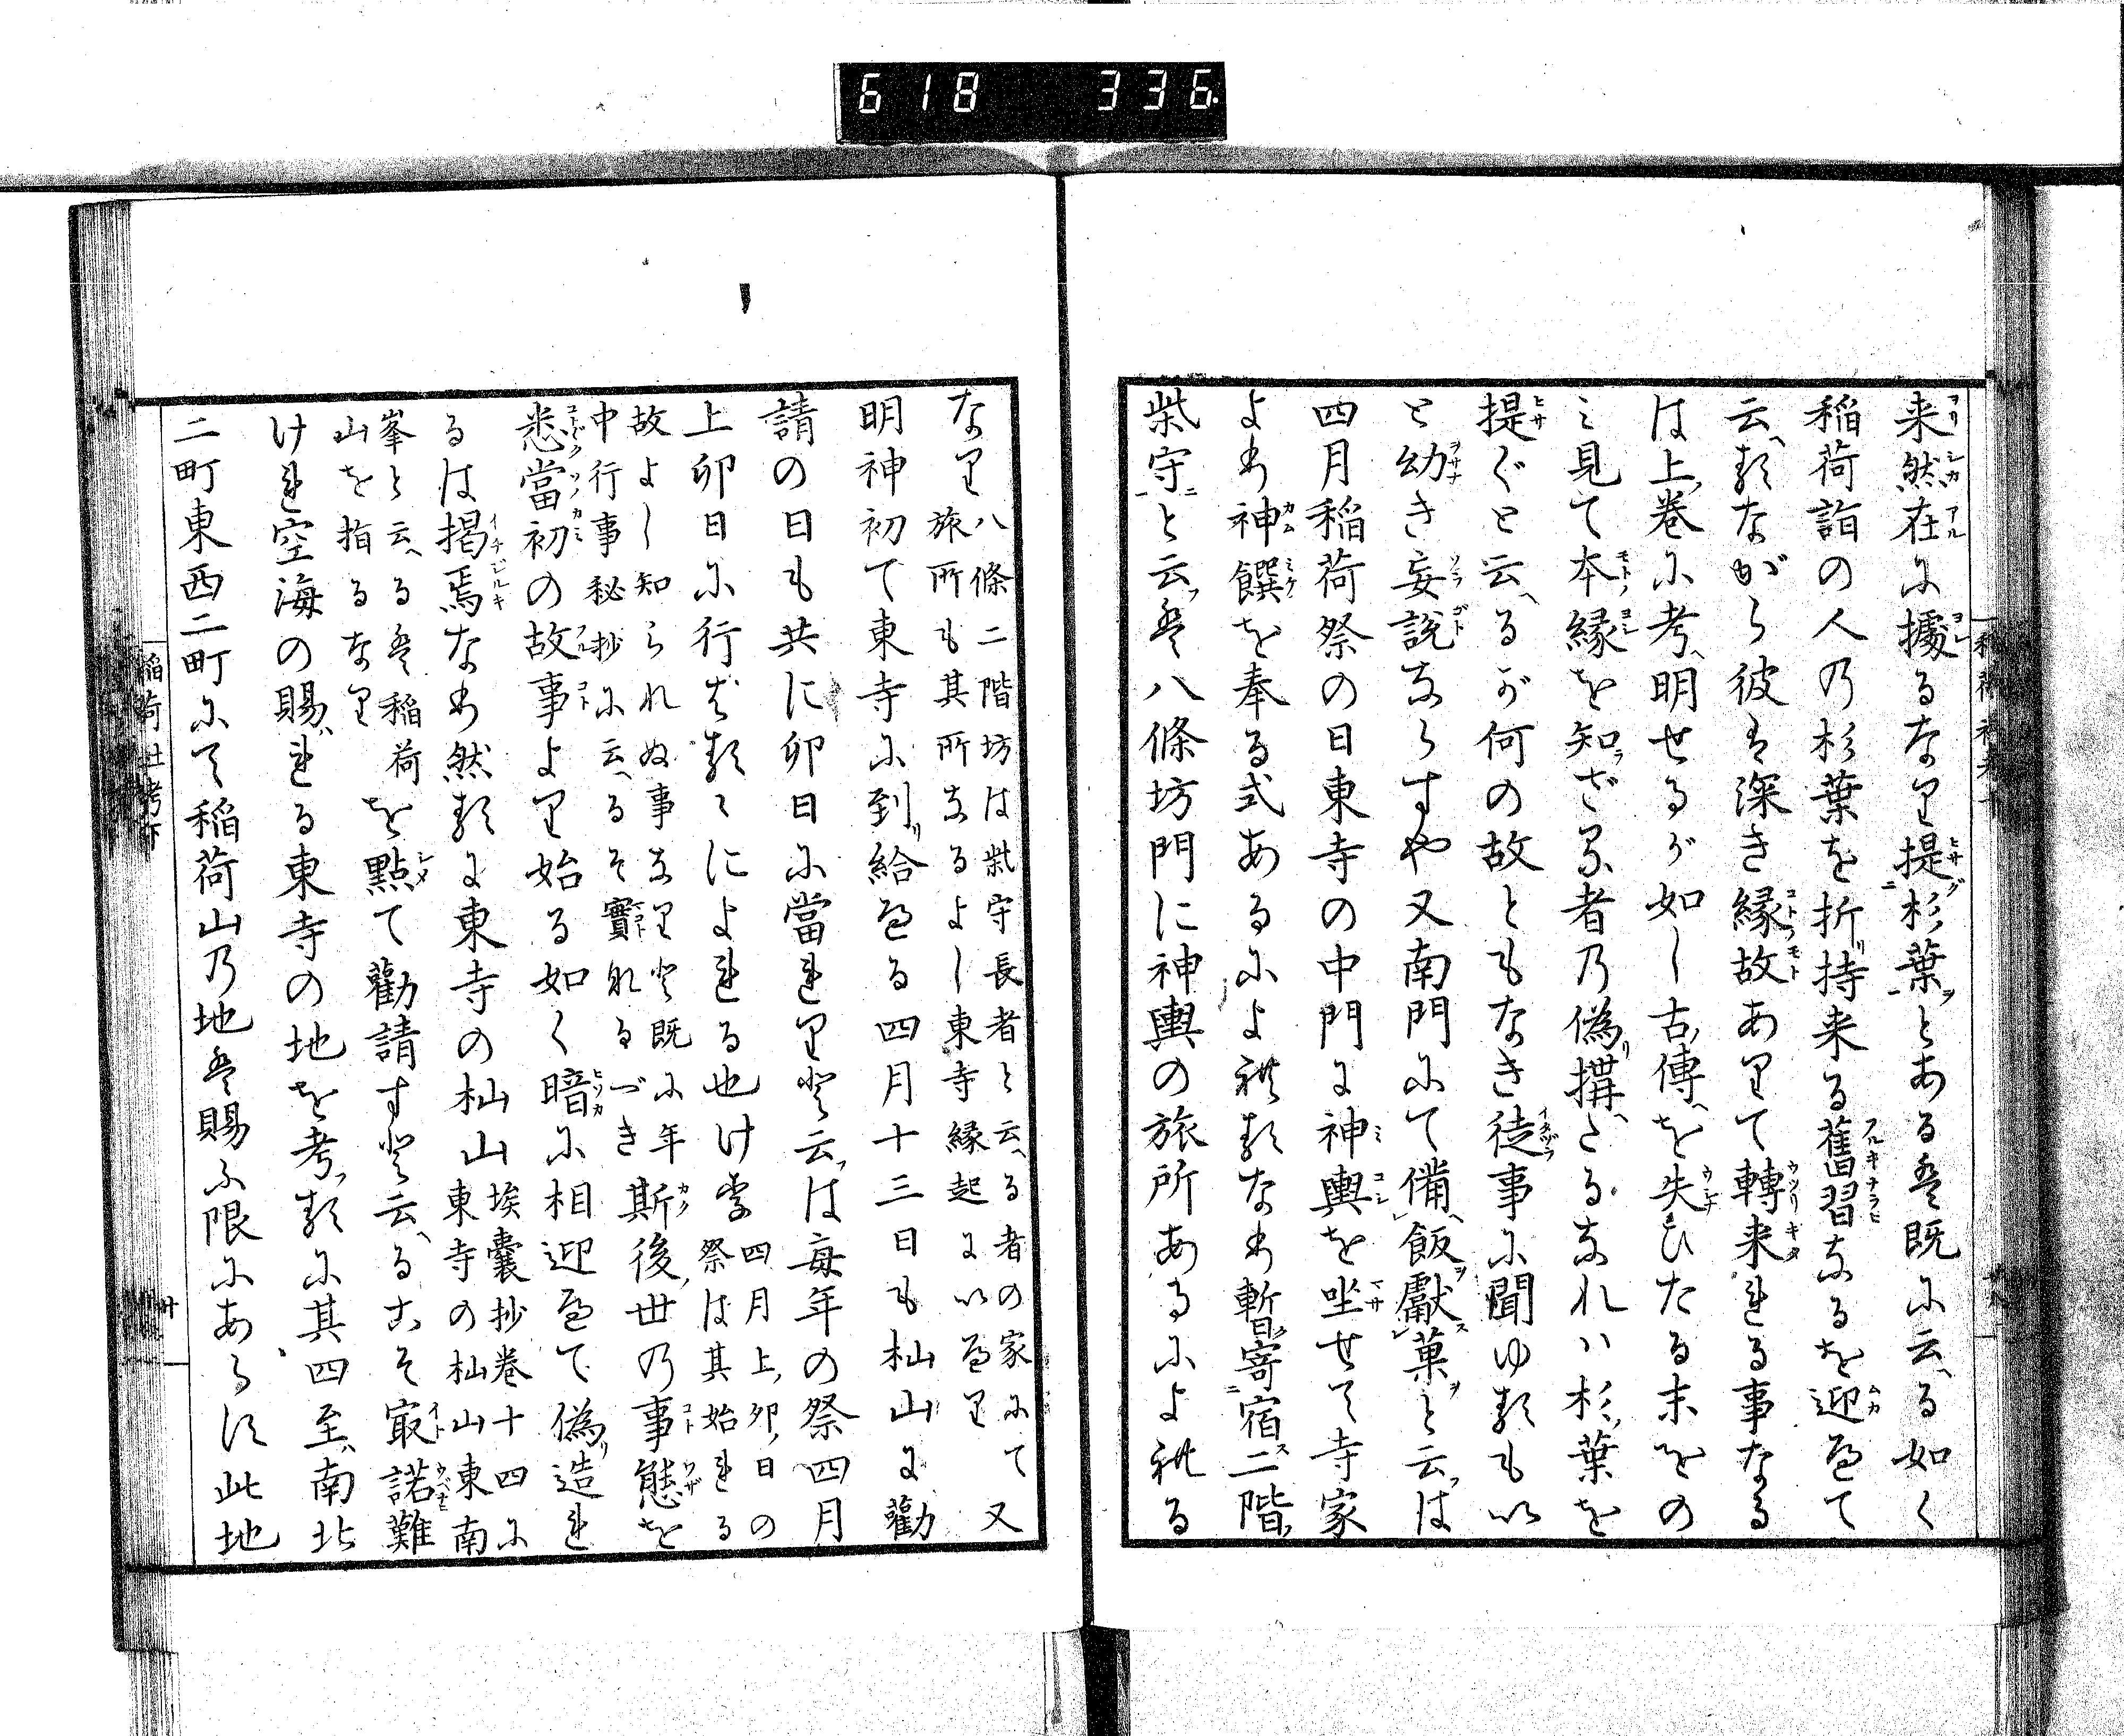 618 336
来然在に據るなり提杉葉とあるは既に云る如く
稲荷詣の人乃杉葉を折持来る舊習なるを迎へて
云るながら彼は深き縁故ありて轉来れる事なる
は上巻に考明せるが如し古傳を失ひたる末をの
ミ見て本縁を知ざる者乃偽搆たるなれハ杉葉を
提ぐと云るが何の故ともなき徒事に聞ゆるもい
と幼き妄説ならすや又南門にて備飯獻菓と云は
四月稲荷祭の日東寺の中門に神輿を坐せて寺家
より神饌を奉る式あるによれるなり暫寄宿二階
柴守と云は八條坊門に神輿の旅所あるによれる
なり八條二階坊は柴守長者と云る者の家にて又
旅所も其所なるよし東寺縁起にいへり
明神初て東寺に到給へる四月十三日も杣山に勸
請の日も共に卯日に當れりと云は毎年の祭四月
上卯日に行はるるによれる也け
四月上卯日の
祭は其始れる
故よし知られぬ事なりと既に年
中行事秘抄に云るそ實なるづき
斯後世の事態を
悉當初の故事より始る如く暗に相迎へて偽造れ
るは掲焉なり然るに東寺の杣山
埃嚢抄巻十四に
東寺の杣山東南
峯と云るは稲荷
山を指るなり
を點て勸請すと云るこそ最諾難
けれ空海の賜れる東寺の地を考るに其四至南北
二町東西二町にて稲荷山乃地は賜ふ限にあらす此地
稲荷社考下